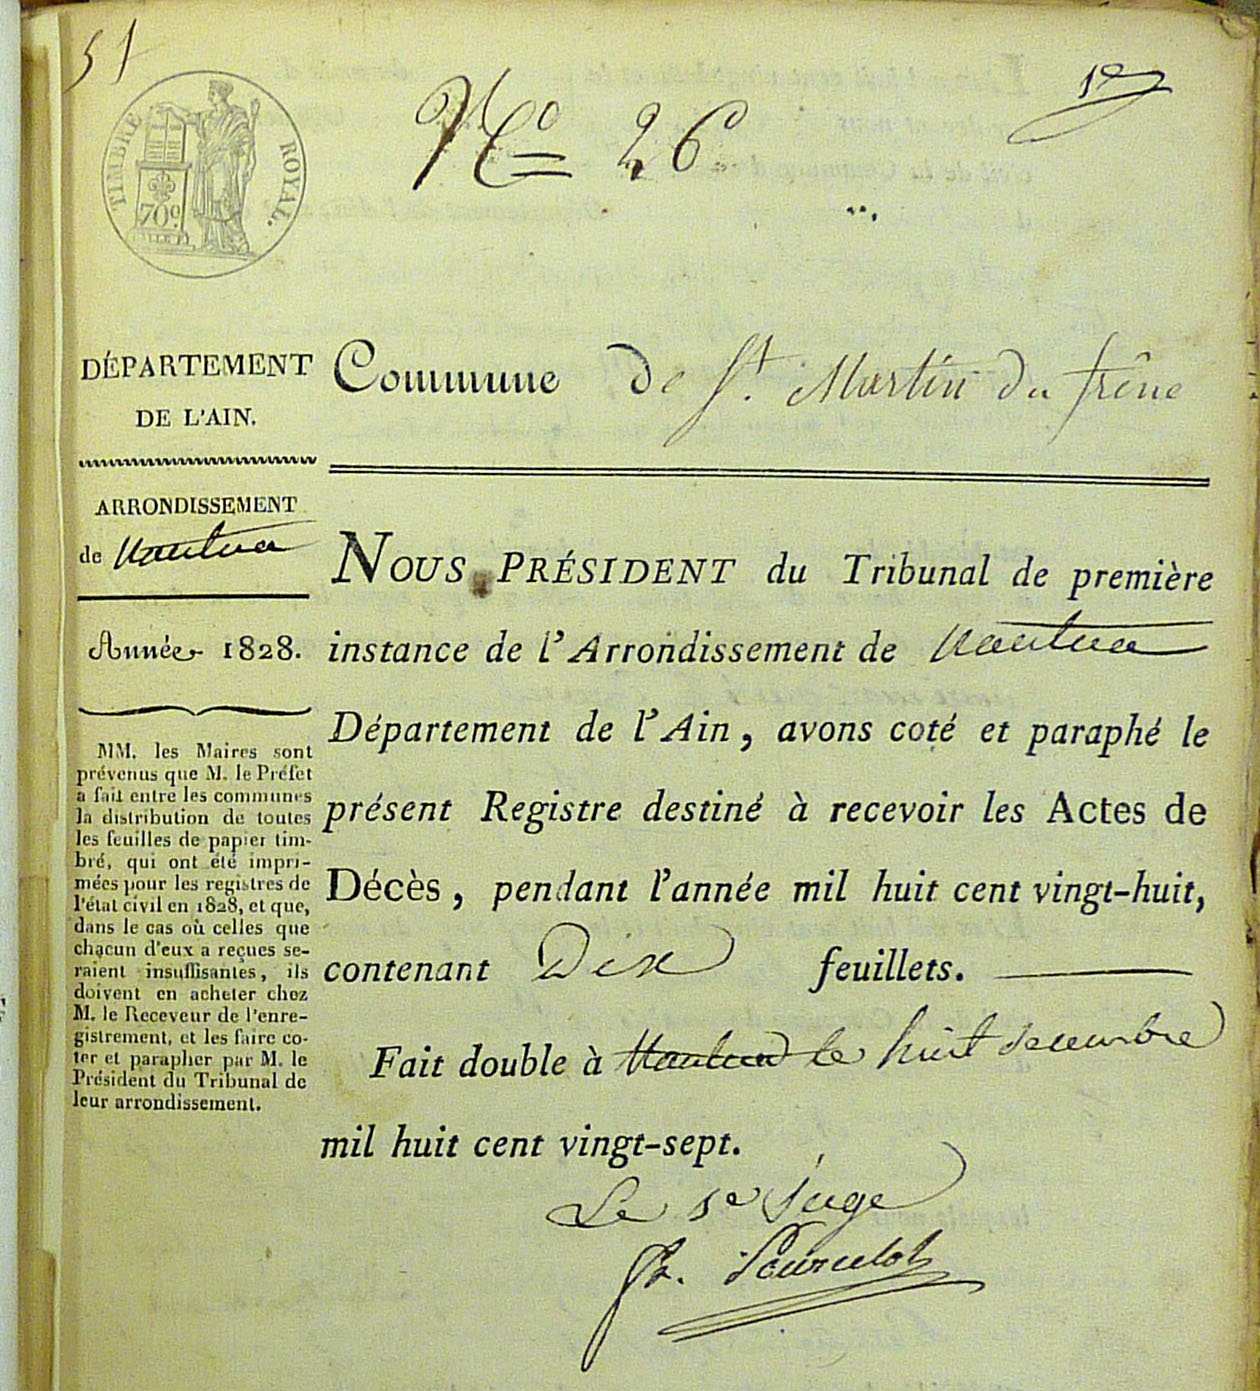 51
1e
N° 26
TIMBRE ROYAL.
70c
DÉPARTEMENT
DE L'AIN.
Commune de St. Martin du frêne
ARRONDISSEMENT
de Nantua
Année 1828.
MM. les Maires sont
prévenus que M. le Préfet
a fait entre les communes
la distribution de toutes
les feuilles de papier tim-
bré, qui ont été impri-
mées pour les registres de
l'état civil en 1828, et que,
dans le cas où celles que
chacun d'eux a reçues se-
raient insuffisantes, ils
doivent en acheter chez
M. le Receveur de l'enre-
gistrement, et les faire co-
ter et parapher par M. le
Président du Tribunal de
leur arrondissement.
NOUS PRÉSIDENT du Tribunal de première
instance de l'Arrondissement de Nantua
Département de l'Ain, avons coté et paraphé le
présent Registre destiné à recevoir les Actes de
Décès, pendant l'année mil huit cent vingt-huit,
contenant Dix feuillets.
Fait double à Nantua le huit decembre
mil huit cent vingt-sept.
Le 1e Juge